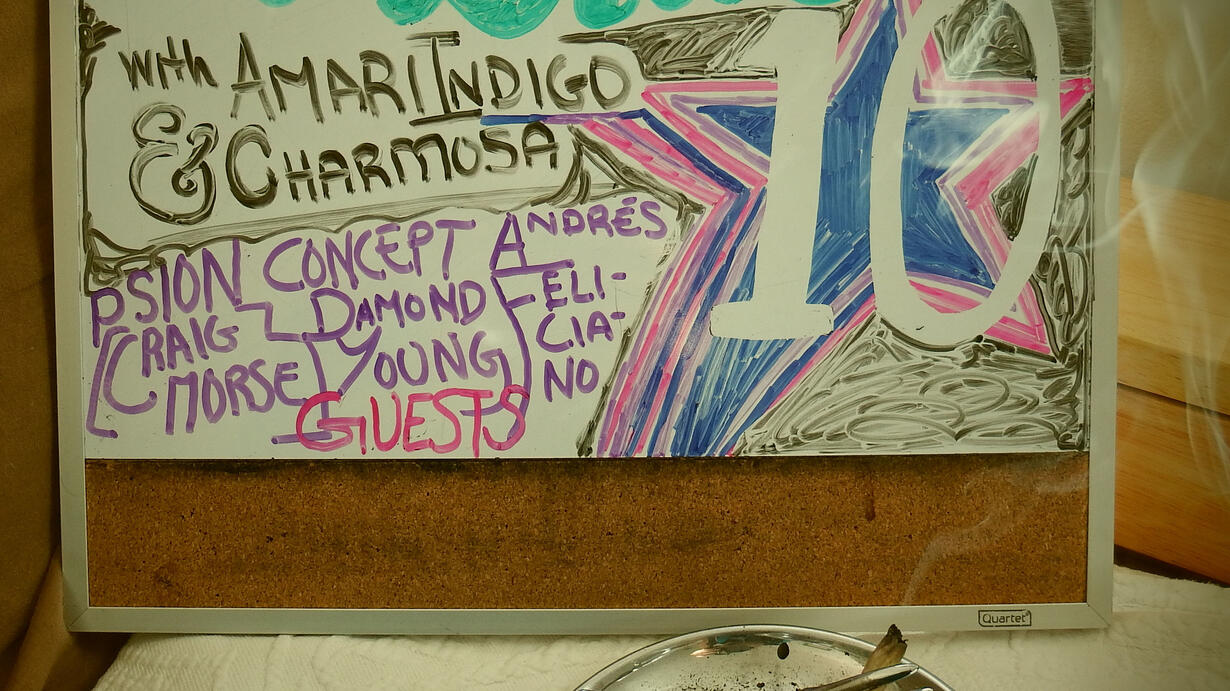 with AMARI INDIGO
& CHARMOSA
10
PSION CONCEPT
CRAIG
MORSE
DAMOND
YOUNG
ANDRÉS
FELI-
CIA-
NO
GUESTS
Quartet